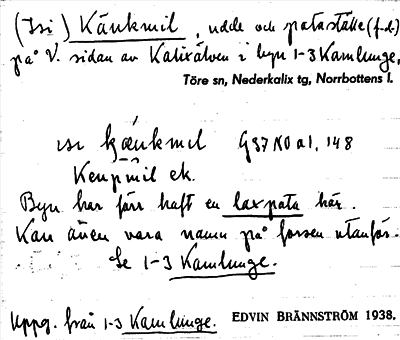 (Isi) Känkmil, udde och pataställe (f.d.)
på V. sidan av Kalixälven i byn 1-3 Kamlunge,
Töre sn, Nederkalix tg, Norrbottens l.
ısı kæŋkmil G37 N0 a1, 148
Kenpmil ek.
Byn har förr haft en laxpata här.
Kan även vara namn på forsen utanför.
Se 1-3 Kamlunge.
Uppg. från 1-3 Kamlunge. EDVIN BRÄNNSTRÖM 1938.